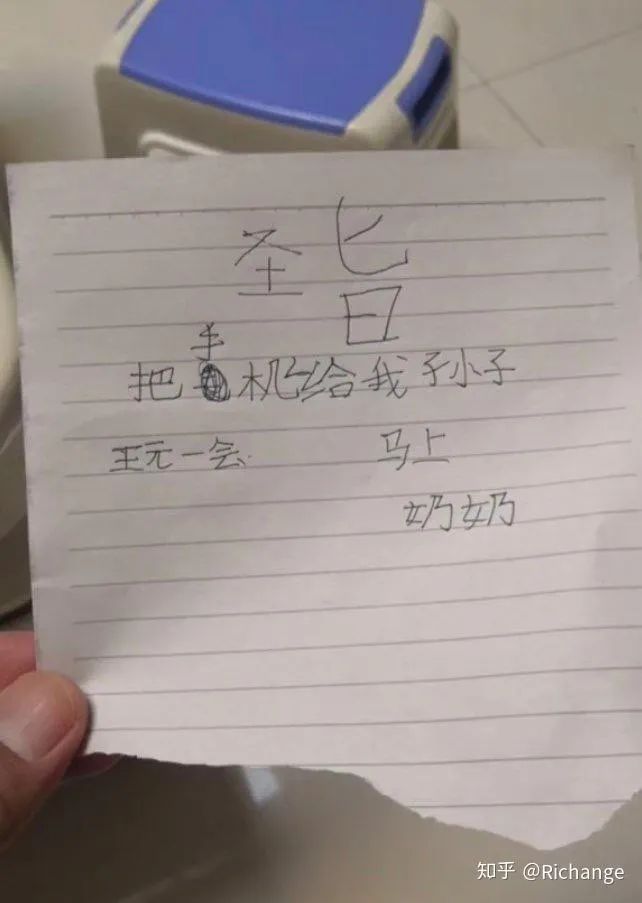 圣旨
把手机给我孙子
王元一会 马上
奶奶
知乎 @Richange